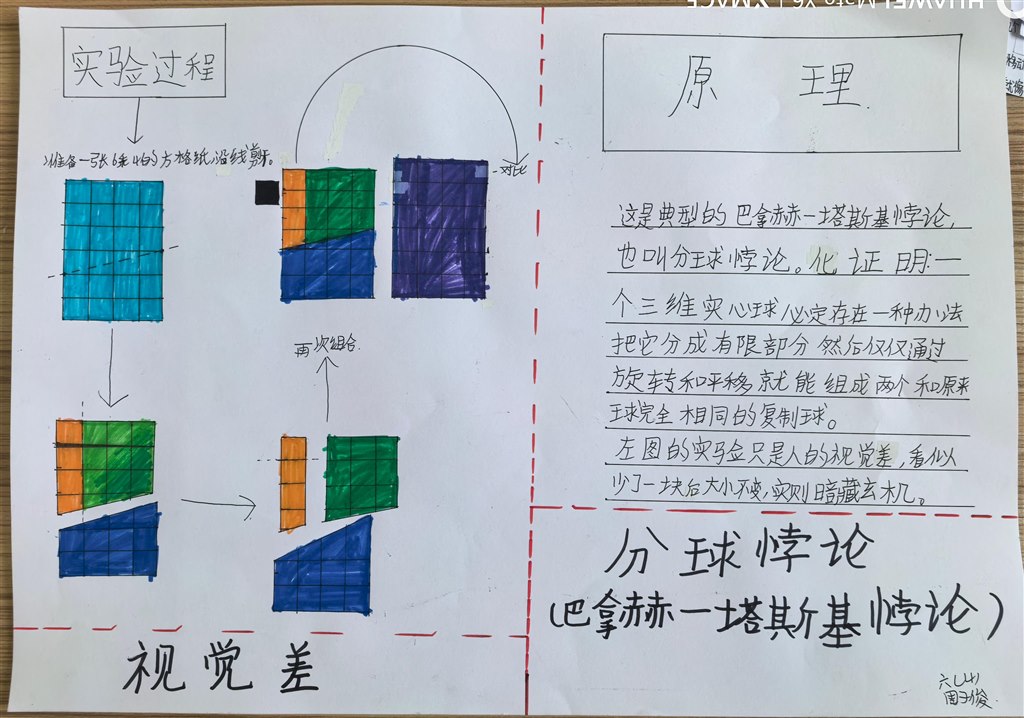 实验过程
准备一张6乘4的方格纸,沿线剪开。
对比
再次组合.
视觉差
原 理
这是典型的巴拿赫一塔斯基悖论,
也叫分球悖论。化证明:一
个三维实心球必定存在一种办法
把它分成有限部分然后仅仅通过
旋转和平移就能组成两个和原来
球完全相同的复制球。
左图的实验只是人的视觉差,看似
少了一块后大小不变,实则暗藏玄机。
分球悖论
(巴拿赫一塔斯基悖论)
HUAWEI Mate X6 | XMAGE